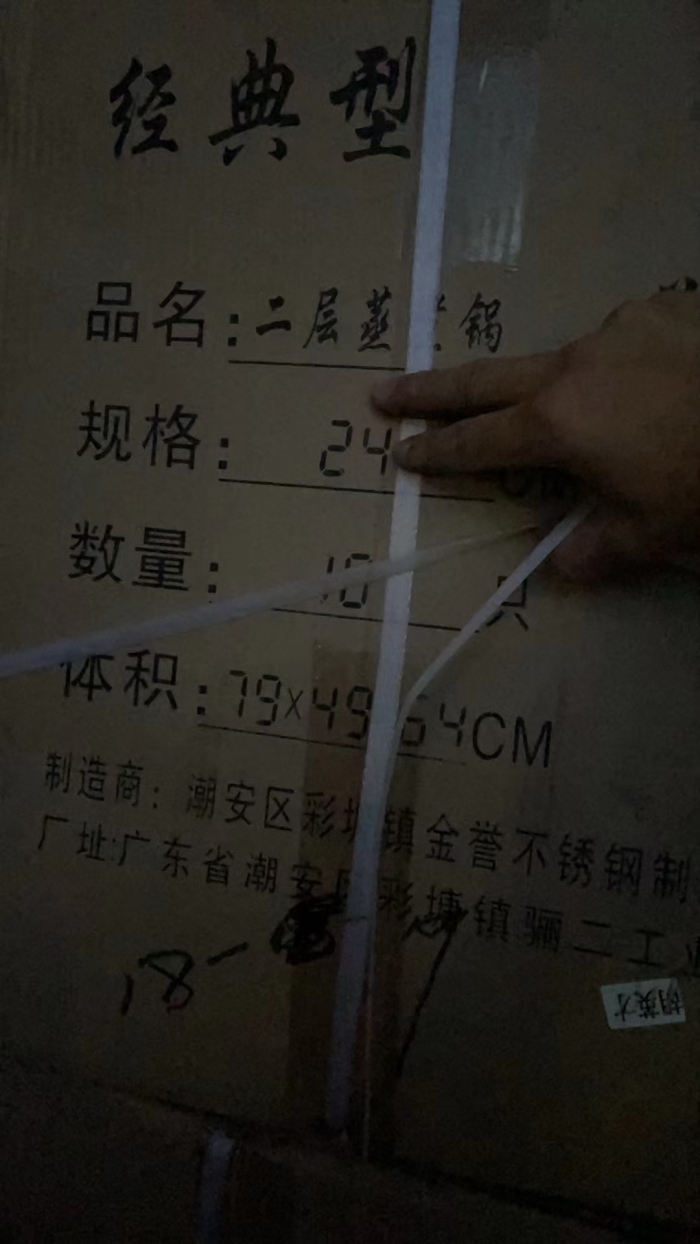 经典型
品名:二层蒸 锅
规格: 24
数量: 10 只
体积:79x49 64CM
制造商:潮安区彩塘镇金誉不锈钢制
厂址:广东省潮安区彩塘镇骊二工业
18-
胡英才